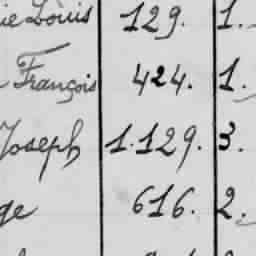 ie Louis 129. 1.
François 424. 1.
Joseph 1.129. 3.
ge 616. 2.